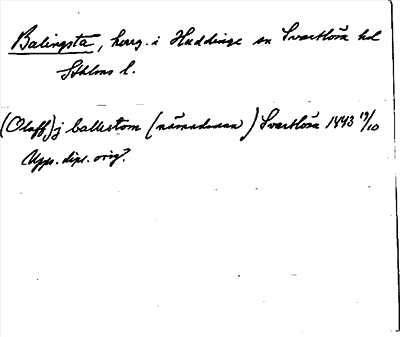 Balingsta, herrg. i Huddinge sn Svartlösa hd
Sthlms l.
(Olaff) j ballestom (nämndeman) Svartlösa 1443 19/10
Upps. dipl. orig?